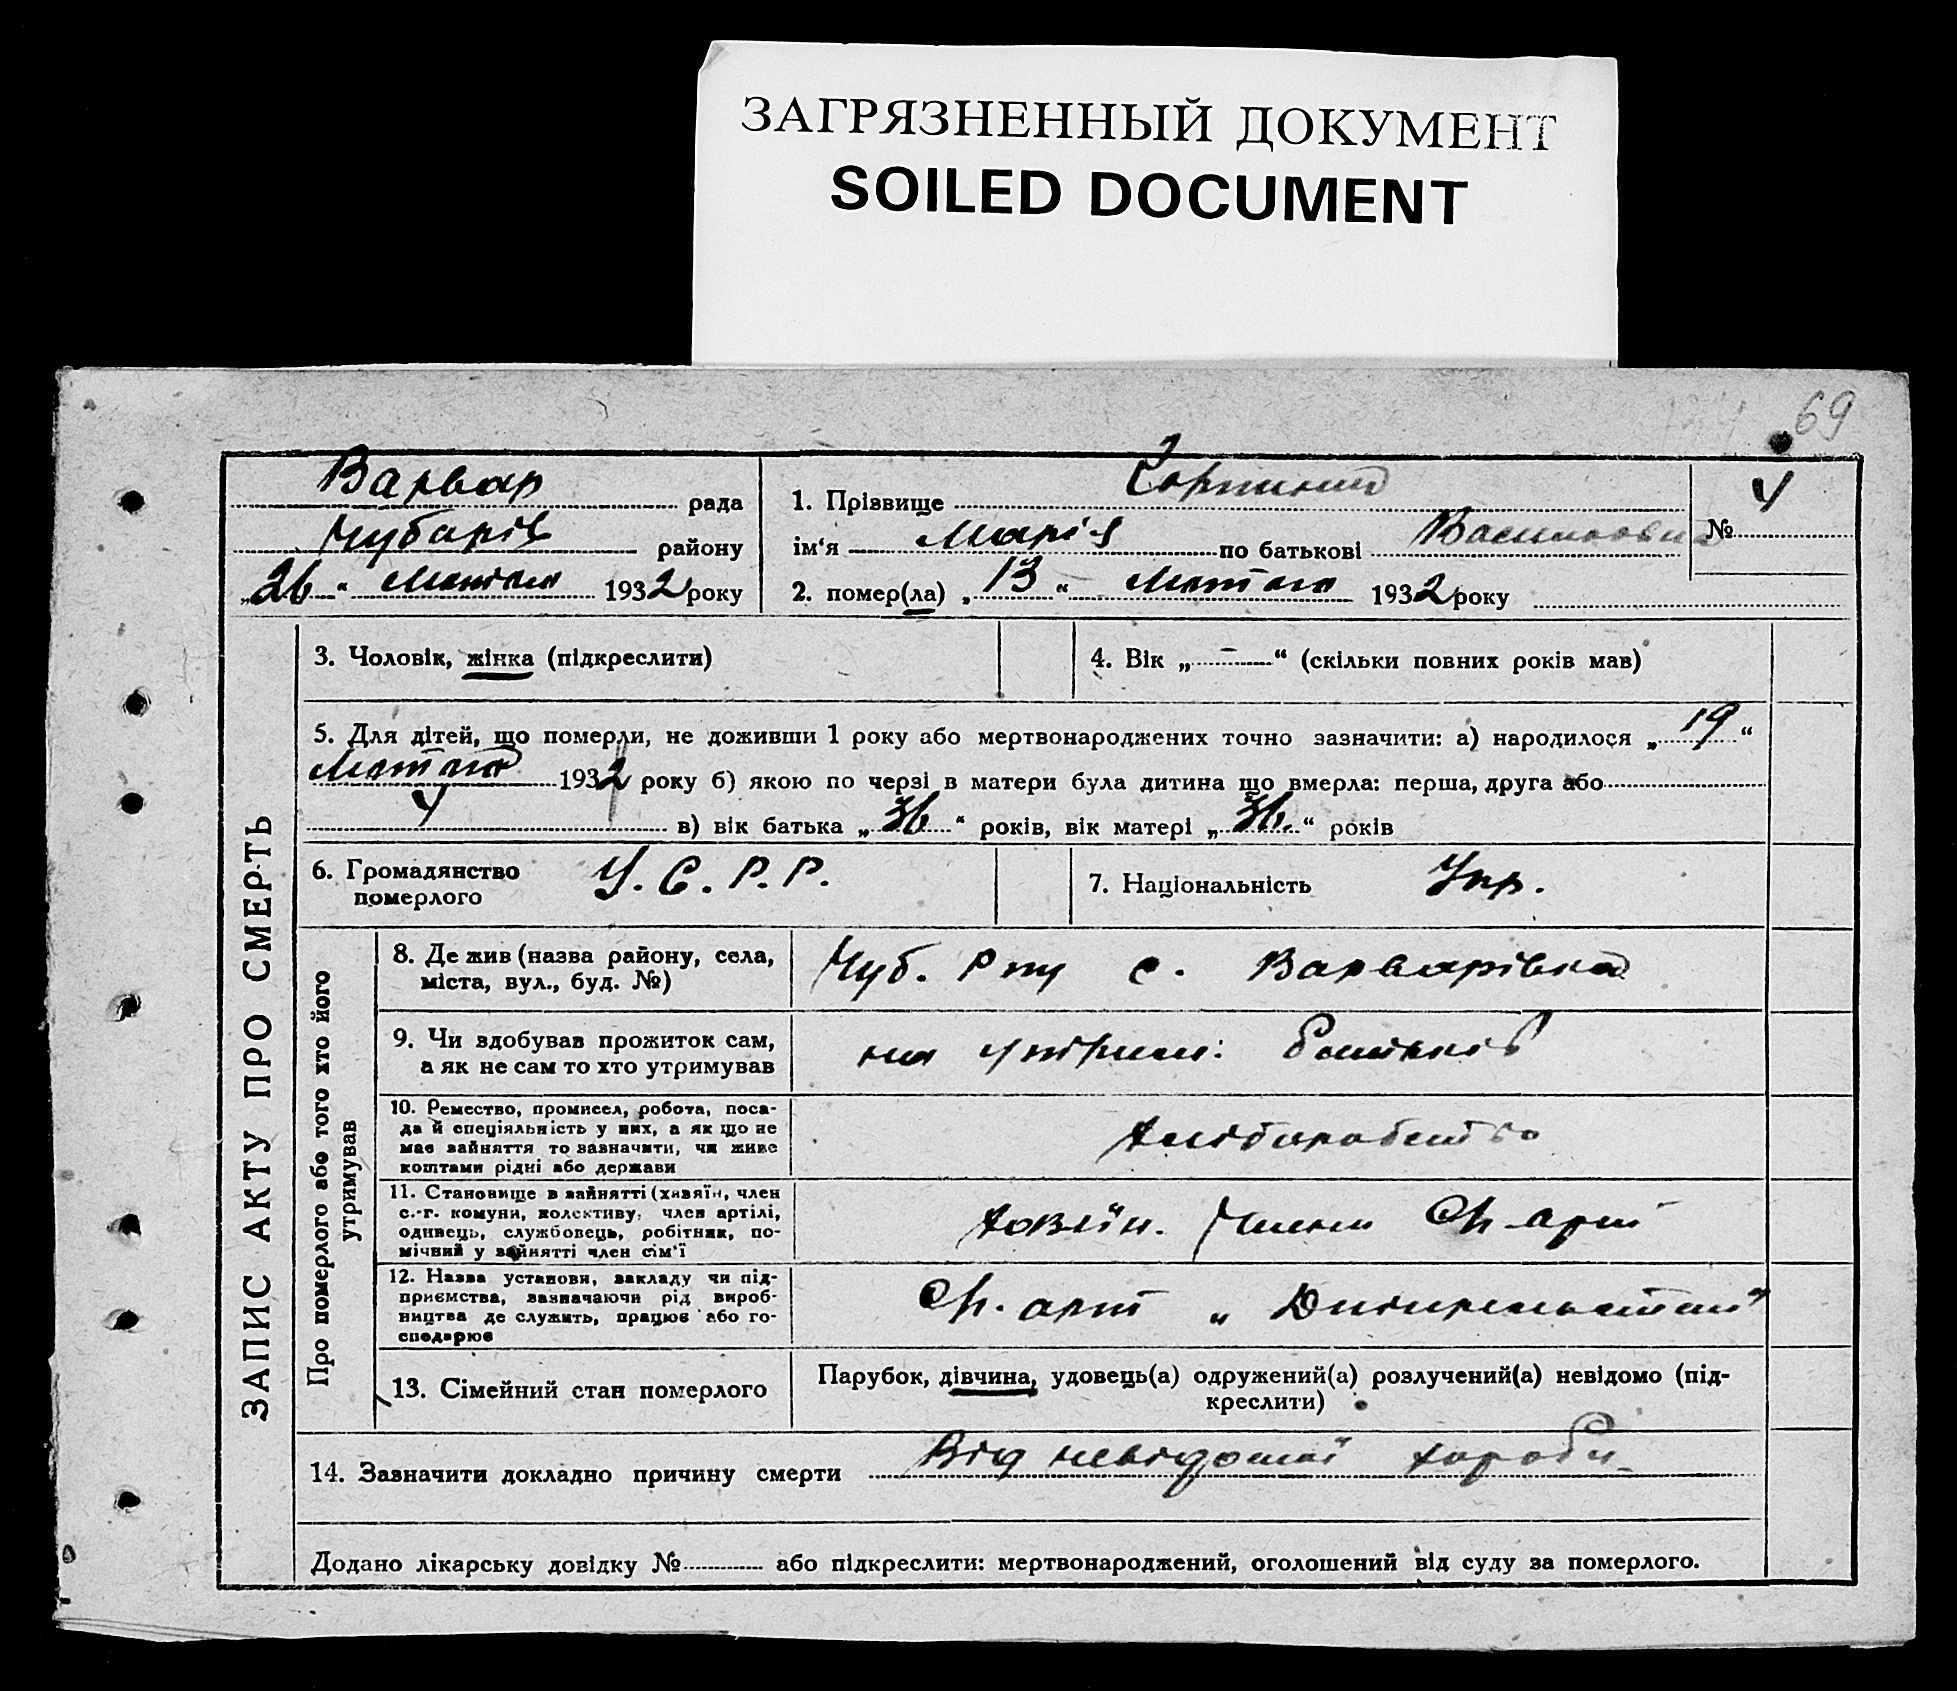 ЗАГРЯЗНЕННЫЙ ДОКУМЕНТ
SOILED DOCUMENT
69
Варвар рада
Чубарів району
„26“ 1932 року
1. Прізвище
ім‘я Марія по батькові Василівна
№ 4
2. помер(ла) „13“ 1932 року
ЗАПИС АКТУ ПРО СМЕРТЬ
3. Чоловік, жінка (підкреслити)
4. Вік „—“ (скільки повних років мав)
5. Для дітей, що померли, не доживши 1 року або мертвонароджених точно зазначити: а) народилося „19“
1932 року б) якою по черзі в матери була дитина що вмерла: перша, друга або
4 в) вік батька „36“ років, вік матері „36.“ років
6. Громадянство
померлого
У. С. Р. Р.
7. Національність Укр.
Про померлого або того хто його
утримував
8. Де жив (назва району, села,
міста, вул., буд. №)
Чуб. Р ну с. Варварівка
9. Чи здобував прожиток сам,
а як не сам то хто утримував
на утрим: батьків
10. Ремество, промисел, робота, поса-
да й спеціяльність у них, а як що не
має зайняття то зазначити, чи живе
коштами рідні або держави
хліборобство
11. Становище в зайнятті (хазяїн, член
с.-г. комуни, колективу, член артілі,
одинець, службовець, робітник, по-
мічний у зайнятті член сім‘ї
хазяїн. Член Сг. арт
12. Назва установи, закладу чи під-
приємства, зазначаючи рід вироб-
ництва де служить, працює або го-
сподарює
Сг. арт „
13. Сімейний стан померлого
Парубок, дівчина, удовець(а) одружений(а) розлучений(а) невідомо (під-
креслити)
14. Зазначити докладно причину смерти Від невідомої хороби
Додано лікарську довідку № або підкреслити: мертвонароджений, оголошений від суду за померлого.